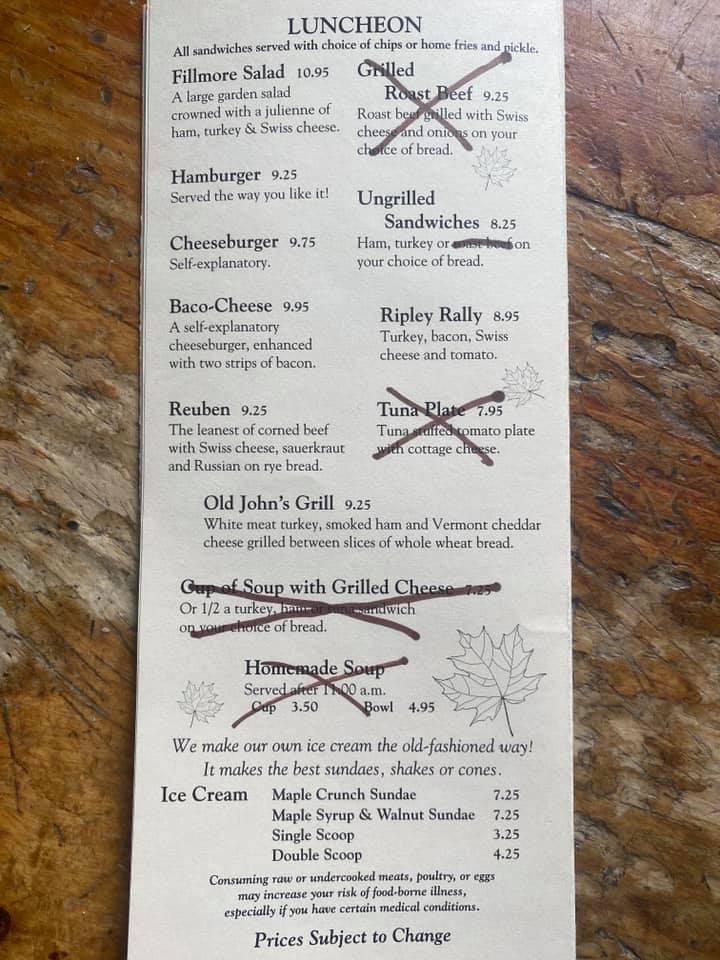 LUNCHEON
All sandwiches served with choice of chips or home fries and pickle.
Fillmore Salad 10.95
A large garden salad
crowned with a julienne of
ham, turkey & Swiss cheese.
Hamburger 9.25
Served the way you like it!
Cheeseburger 9.75
Self-explanatory.
Baco-Cheese 9.95
A self-explanatory
cheeseburger, enhanced
with two strips of bacon.
Reuben 9.25
The leanest of corned beef
with Swiss cheese, sauerkraut
and Russian on rye bread.
Grilled
Roast Beef 9.25
Roast beef grilled with Swiss
cheese and onions on your
choice of bread.
Ungrilled
Sandwiches 8.25
Ham, turkey or roast beef on
your choice of bread.
Ripley Rally 8.95
Turkey, bacon, Swiss
cheese and tomato.
Tuna Plate 7.95
Tuna stuffed tomato plate
with cottage cheese.
Old John's Grill 9.25
White meat turkey, smoked ham and Vermont cheddar
cheese grilled between slices of whole wheat bread.
Cup of Soup with Grilled Cheese 7.25
Or 1/2 a turkey, ham or tuna sandwich
on your choice of bread.
Homemade Soup
Served after 11:00 a.m.
Cup 3.50 Bowl 4.95
We make our own ice cream the old-fashioned way!
It makes the best sundaes, shakes or cones.
Ice Cream Maple Crunch Sundae 7.25
Maple Syrup & Walnut Sundae 7.25
Single Scoop 3.25
Double Scoop 4.25
Consuming raw or undercooked meats, poultry, or eggs
may increase your risk of food-borne illness,
especially if you have certain medical conditions.
Prices Subject to Change